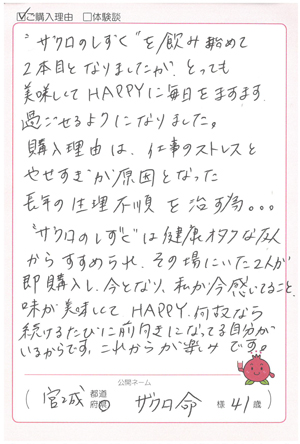 ☑ご購入理由 □体験談
"ザクロのしずく"を飲み始めて
2本目となりましたが、とっても
美味しくてHAPPYに毎日をますます
過ごせるようになりました。
購入理由は、仕事のストレスと
やせすぎが原因となった
長年の生理不順を治す為。。。
"ザクロのしずく"は健康オタクな友人
からすすめられ、その場にいた2人が
即購入し、今となり、私が今感じてること、
味が美味しくてHAPPY.何故なら
続けるたびに前向きになってる自分が
いるからです。これからが楽しみです。
公開ネーム
(宮城 都道府県 ザクロ命 様 41歳)